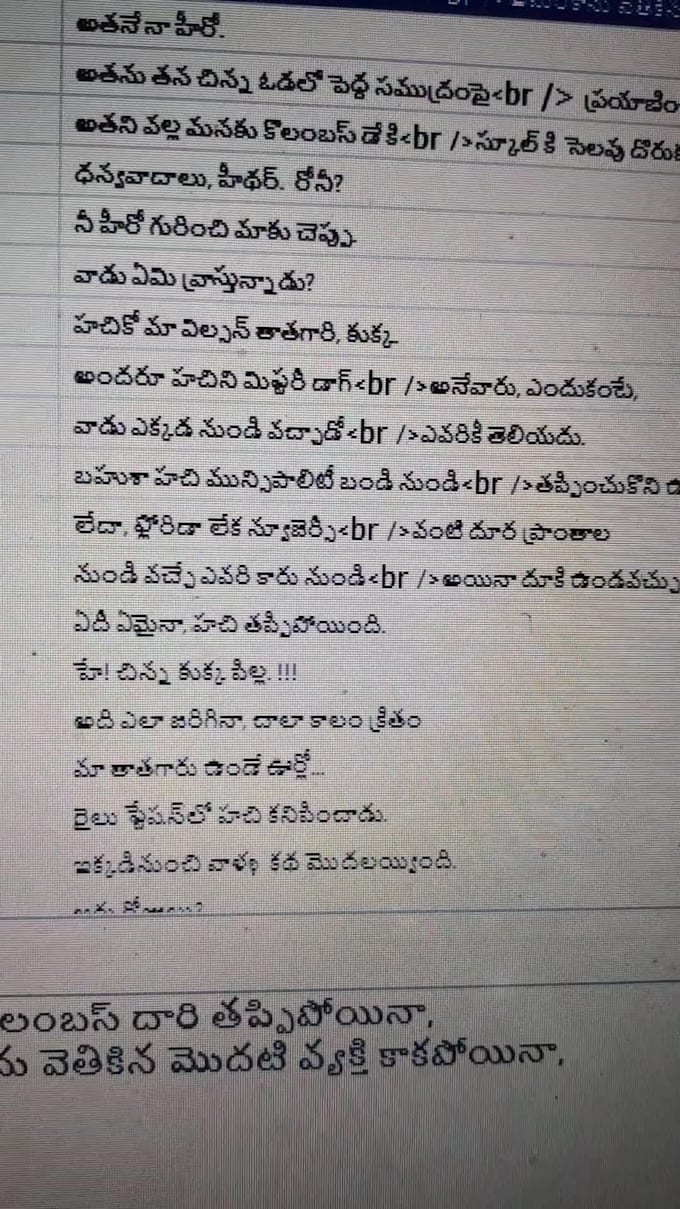 అతనేనా హీరో.
అతను తన చిన్న ఓడలో పెద్ద సముద్రంపై<br /> ప్రయాణిం
అతని వల్ల మనకు కొలంబస్ డే కి<br />స్కూల్ కి సెలవు దొరు
ధన్యవాదాలు, హీథర్. రోనీ?
నీ హీరో గురించి మాకు చెప్పు.
వాడు ఏమి వ్రాస్తున్నాడు?
హచికో మా విల్సన్ తాతగారి, కుక్క
అందరూ హచిని మిస్టరీ డాగ్<br />అనేవారు, ఎందుకంటే,
వాడు ఎక్కడ నుండి వచ్చాడో<br />ఎవరికీ తెలియదు.
బహుశా హచి మున్సిపాలిటీ బండి నుండి<br />తప్పించుకొని
లేదా, ఫ్లోరిడా లేక న్యూజెర్సీ<br />వంటి దూర ప్రాంతాల
నుండి వచ్చే ఎవరి కారు నుండి<br />అయినా దూకి ఉండవచ్చు
ఏదీ ఏమైనా, హచి తప్పిపోయింది.
హే! చిన్న కుక్క పిల్ల. !!!
అది ఎలా జరిగినా, చాలా కాలం క్రితం
మా తాతగారు ఉండే ఊర్లో...
రైలు స్టేషన్‌లో హచి కనిపించాడు.
ఇక్కడినుంచి వాళ్ళ కథ మొదలయ్యింది.
లంబస్ దారి తప్పిపోయినా,
ను వెతికిన మొదటి వ్యక్తి కాకపోయినా,